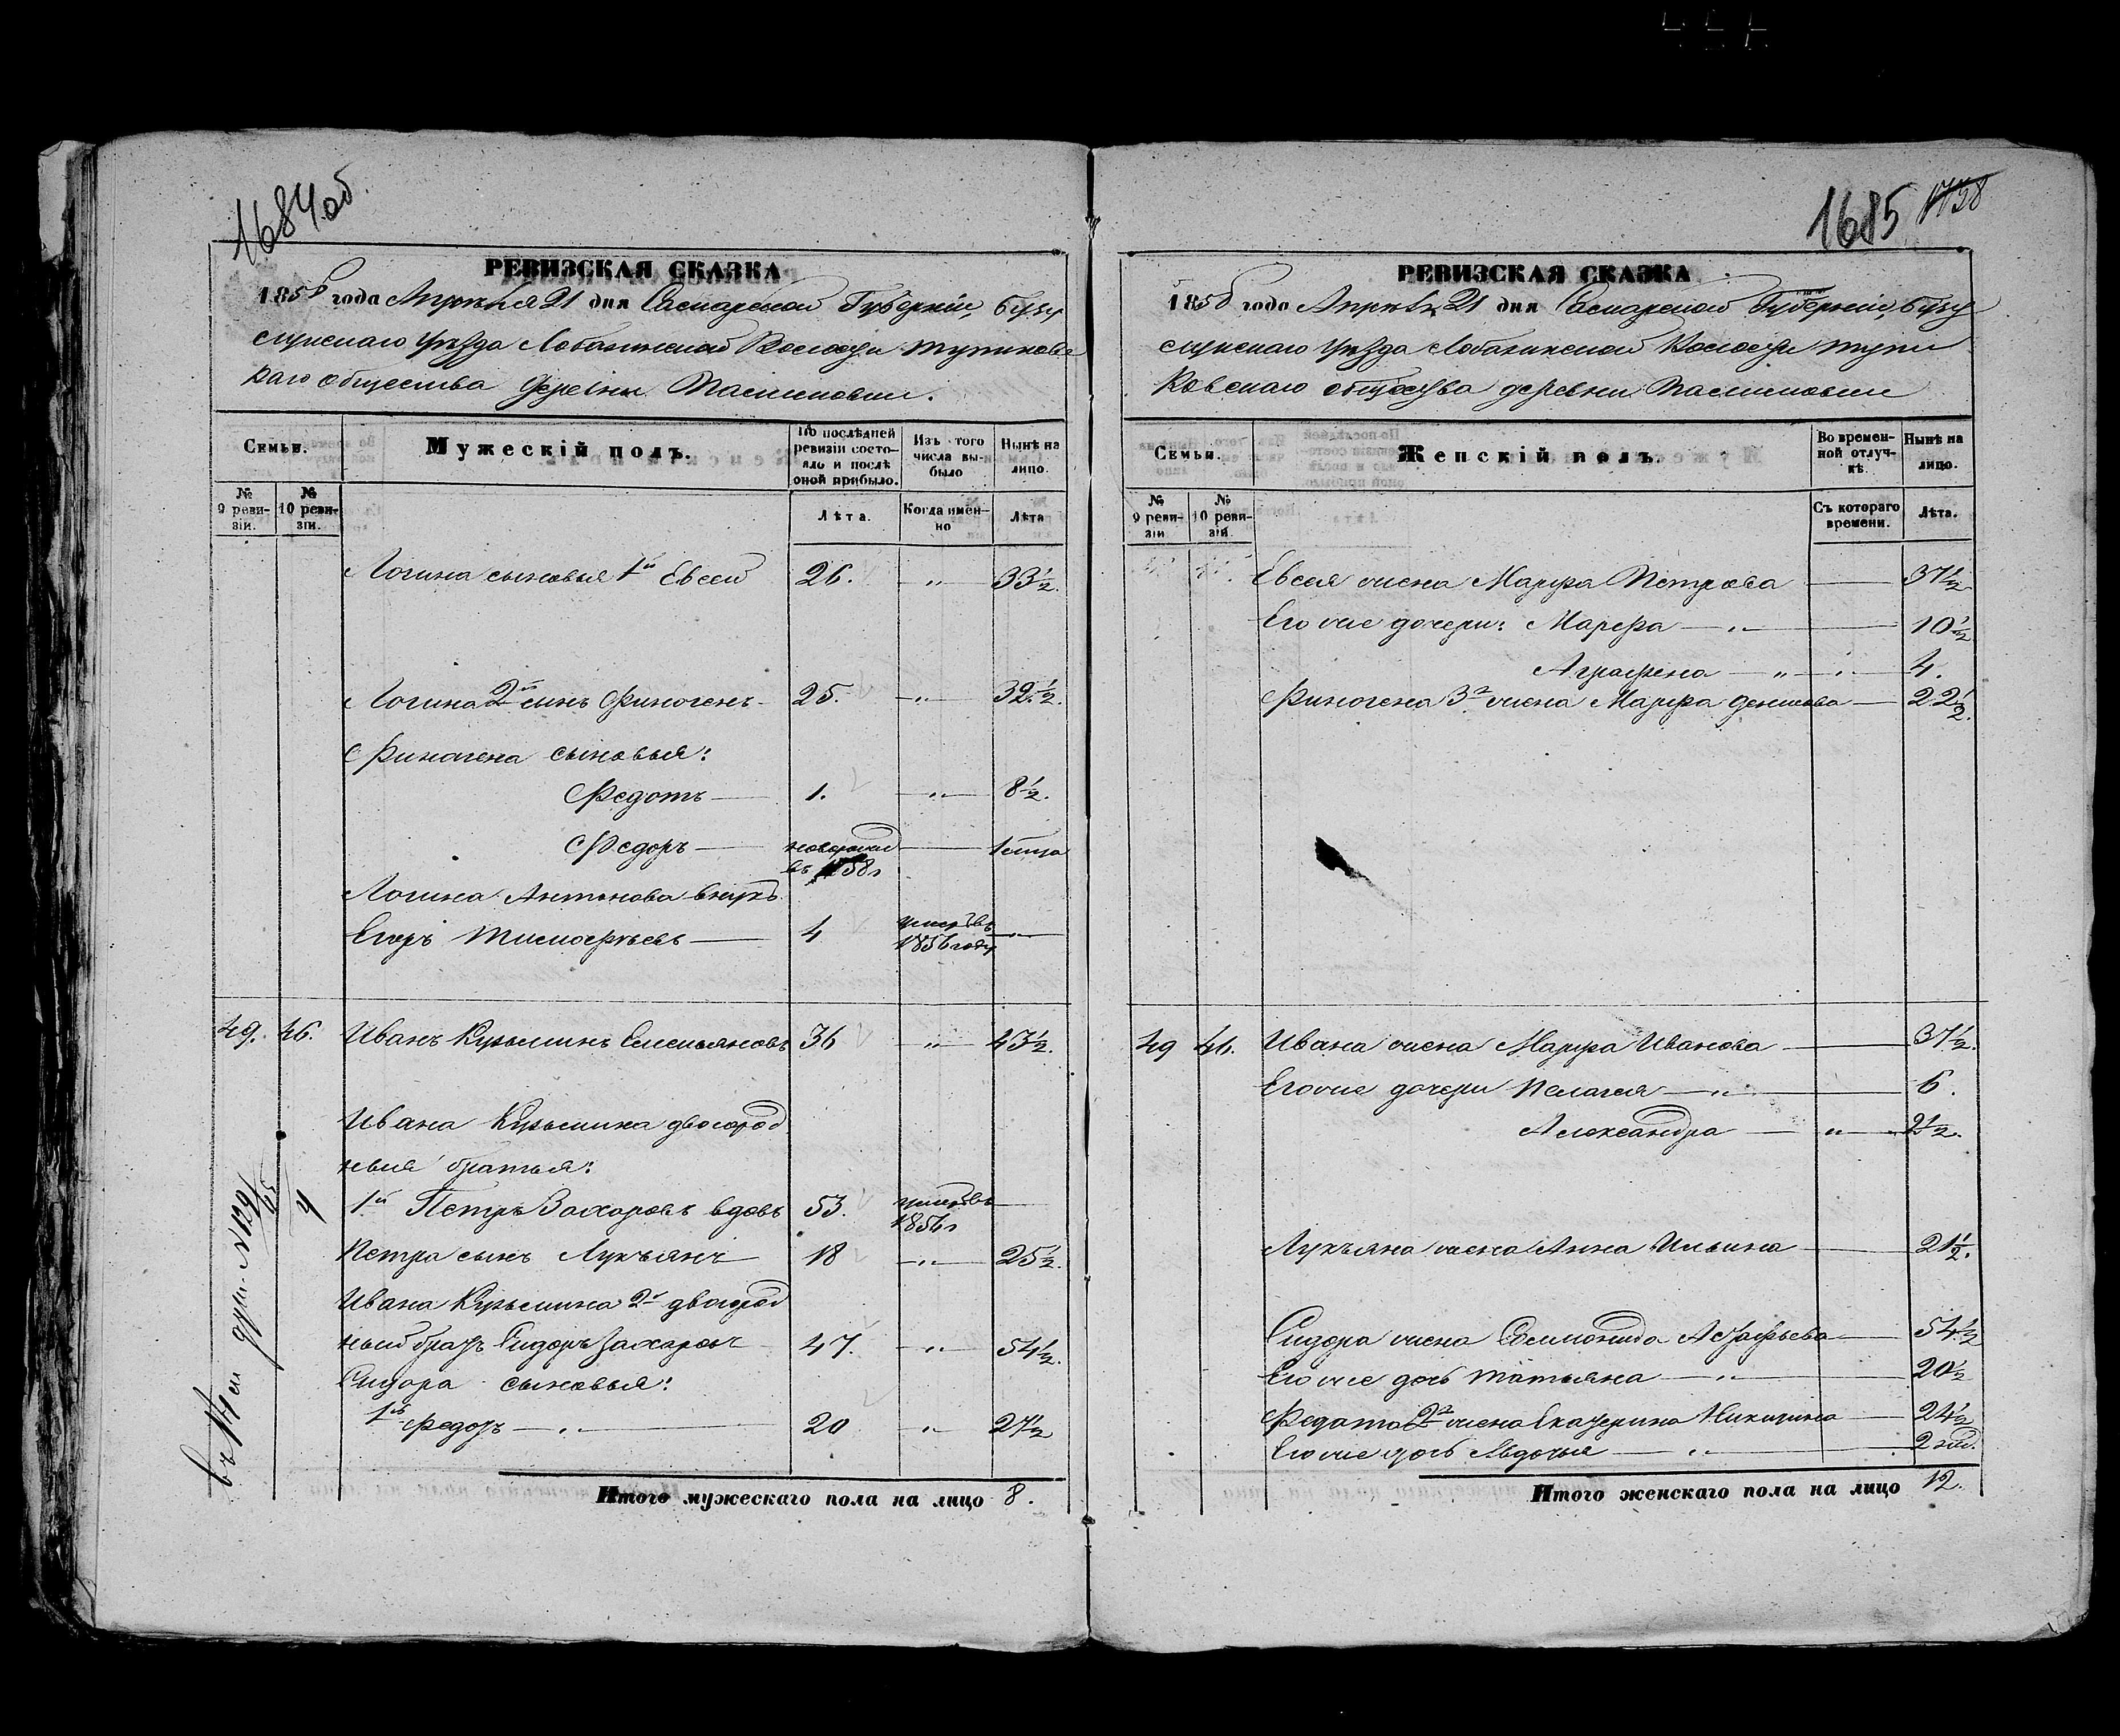 1684об.
РЕВИЗСКАЯ СКАЗКА
1858 года Апрѣля 21 дня Самарской Губерніи, Бузу
лукскаго Уѣзда Лобазинской Волости Тупиковс
каго общества деревни
Семьи.
Мужескій полъ.
По послѣдней ревизіи состояло и послѣ оной прибыло.
Изъ того числа выбыло
Нынѣ на лицо.
№ 9 ревизіи.
№ 10 ревизіи.
Лѣта.
Когда именно
Лѣта
Логина сыновья 1й Евсей 26. " 33½.
Логина 2й сынъ Финогенъ 25. " 32½.
Финогена сыновья:
Федотъ 1. " 8½.
Федоръ новорожд
въ 58г
Логина Антонова внукъ
Егоръ Тимофѣевъ 4 умеръ въ
1856 году
49. 46. Иванъ Кузьминъ Емельяновъ 36 " 43½.
Ивана Кузьмина двоюрод
ныя братья:
1й Петръ Захаровъ вдовъ 53. умеръ въ
1856г
Петра сынъ Лукъянъ 18 " 25½.
Ивана Кузьмина 2й двоюрод
ный братъ Сидоръ Захаровъ 47. " 54½.
Сидора сыновья:
1й Федоръ " 20 " 27½
Итого мужескаго пола на лицо 8.
1685
РЕВИЗСКАЯ СКАЗКА
1858 года Апрѣля 21 дня Самарской Губерніи, Бузу
лукскаго Уѣзда Лобазинской Волости Тупи
ковскаго общества деревни
Семьи.
Женскій полъ.
Во временной отлучкѣ.
Нынѣ на лицо.
№ 9 ревизіи
№ 10 ревизіи.
Съ котораго времени.
Лѣта.
Евсея жена Марфа Петрова 37½
Его же дочери: Марфа " 10½
Аграфена " 4.
Финогена 3я жена Марфа Денисова 22½.
49 46. Ивана жена Марфа Иванова 37½.
Его же дочери Пелагея " 6.
Александра " 2½.
Лукъяна жена Анна Ильина 21½.
Сидора жена Соломонида Астафьева 54½
Его же дочь Татьяна " 20½
Федота 2я жена Екатерина Никитина 24½
Его же дочь Авдотья " 2 год.
Итого женскаго пола на лицо 12.